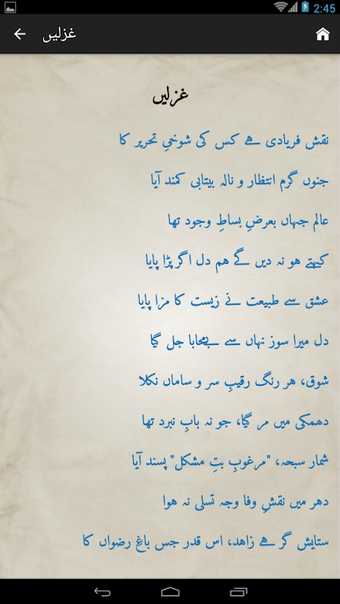 2:45
غزلیں
غزلیں
نقش فریادی ہے کس کی شوخیِ تحریر کا
جنوں گرم انتظار و نالہ بیتابی کمند آیا
عالم جہاں بعرضِ بساطِ وجود تھا
کہتے ہو نہ دیں گے ہم دل اگر پڑا پایا
عشق سے طبیعت نے زیست کا مزا پایا
دل میرا سوز نہاں سے بے محابا جل گیا
شوق، ہر رنگ رقیبِ سر و ساماں نکلا
دھمکی میں مر گیا، جو نہ بابِ نبرد تھا
شمار سبحہ، "مرغوبِ بتِ مشکل" پسند آیا
دہر میں نقشِ وفا وجہ تسلی نہ ہوا
ستایش گر ہے زاہد، اس قدر جس باغِ رضواں کا